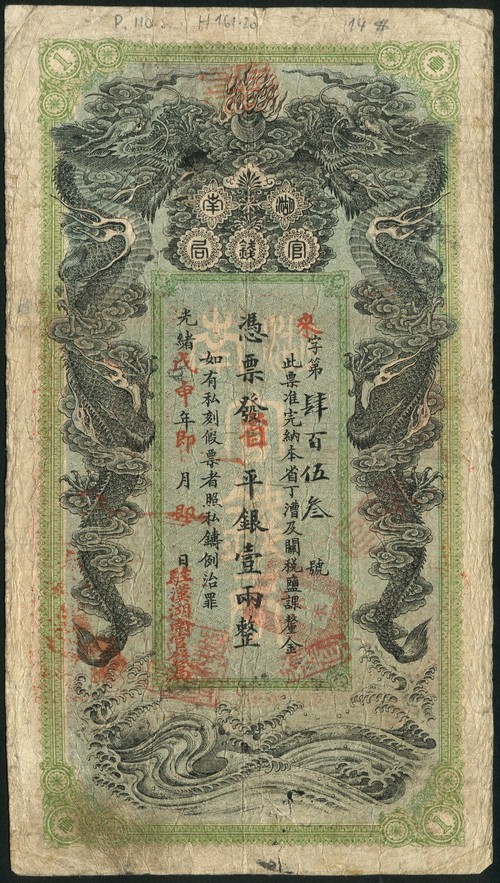 P. 110
H 161.20
14 #
湖南
官錢局
來字第肆百伍叁號
此票准完納本省丁漕及關稅鹽課釐金
憑票發省平銀壹兩整
如有私刻假票者照私鑄例治罪
光緒戊申年即月 日
駐漢湖南官錢局
1
1